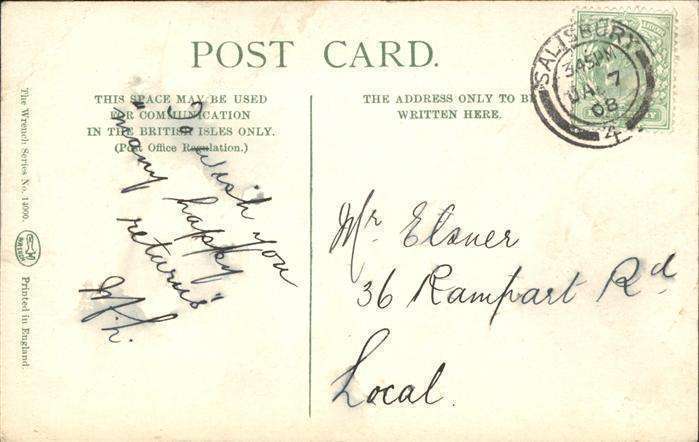 POST CARD.
THIS SPACE MAY BE USED
FOR COMMUNICATION
IN THE BRITISH ISLES ONLY.
(Post Office Regulation.)
THE ADDRESS ONLY TO BE
WRITTEN HERE.
SALISBURY
3.45PM
JA 7
08
4
To wish you
"many happy
returns"
Mr Elsner
36 Rampart Rd
Local.
The Wrench Series No. 14000.
WRENCH
Printed in England.